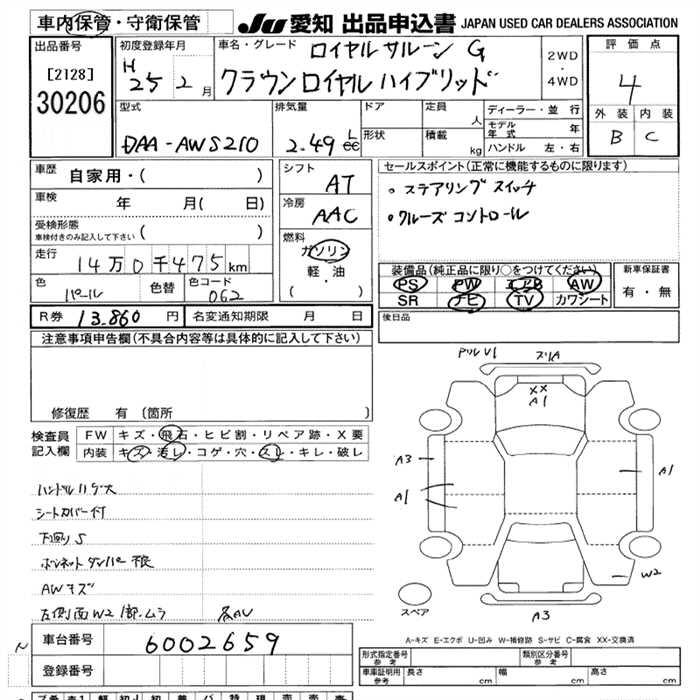 車内保管・守衛保管 JU 愛知 出品申込書 JAPAN USED CAR DEALERS ASSOCIATION
出品番号
[2128]
30206
初度登録年月
H 25 2 月
車名・グレード
ロイヤルサルーン G
クラウンロイヤルハイブリッド
2WD
・
4WD
評価点
4
外装 内装
B C
型式
DAA-AWS210
排気量
2.49 L cc
ドア
形状
定員 人
積載 kg
ディーラー・並行
モデル年式 年
ハンドル 左・右
車歴 自家用・( )
車検 年 月( 日)
受検形態
車検付きのみ記入して下さい ( )
走行 14万0千475km
色 パール 色替 色コード 062
シフト
AT
冷房
AAC
燃料
ガソリン
軽・油
( )
セールスポイント(正常に機能するものに限ります)
。ステアリングスイッチ
。クルーズコントロール
装備品(純正品に限り○をつけてください)
PS PW エアB AW
SR ナビ TV カワシート
新車保証書
有・無
R券 13.860 円 名変通知期限 月 日
後日品
注意事項申告欄(不具合内容等は具体的に記入して下さい)
修復歴 有 [箇所 ]
検査員記入欄
FW キズ・飛石・ヒビ割・リペア跡・X要
内装 キズ・汚レ・コゲ・穴・スレ・キレ・破レ
ハンドルハゲ大
シートカバー付
下廻りS
ボンネットダンパー不良
AWキズ
左側面W2 1部ムラ 各AU
PソルV1 スリA
XX
A1
A3
A1
A1
W2
スペア
A3
A-キズ E-エクボ U-凹み W-補修跡 S-サビ C-腐食 XX-交換済
車台番号 6002659
登録番号
形式指定番号 参考
類別区分番号 参考
車庫証明用 参考 長さ cm 幅 cm 高さ cm